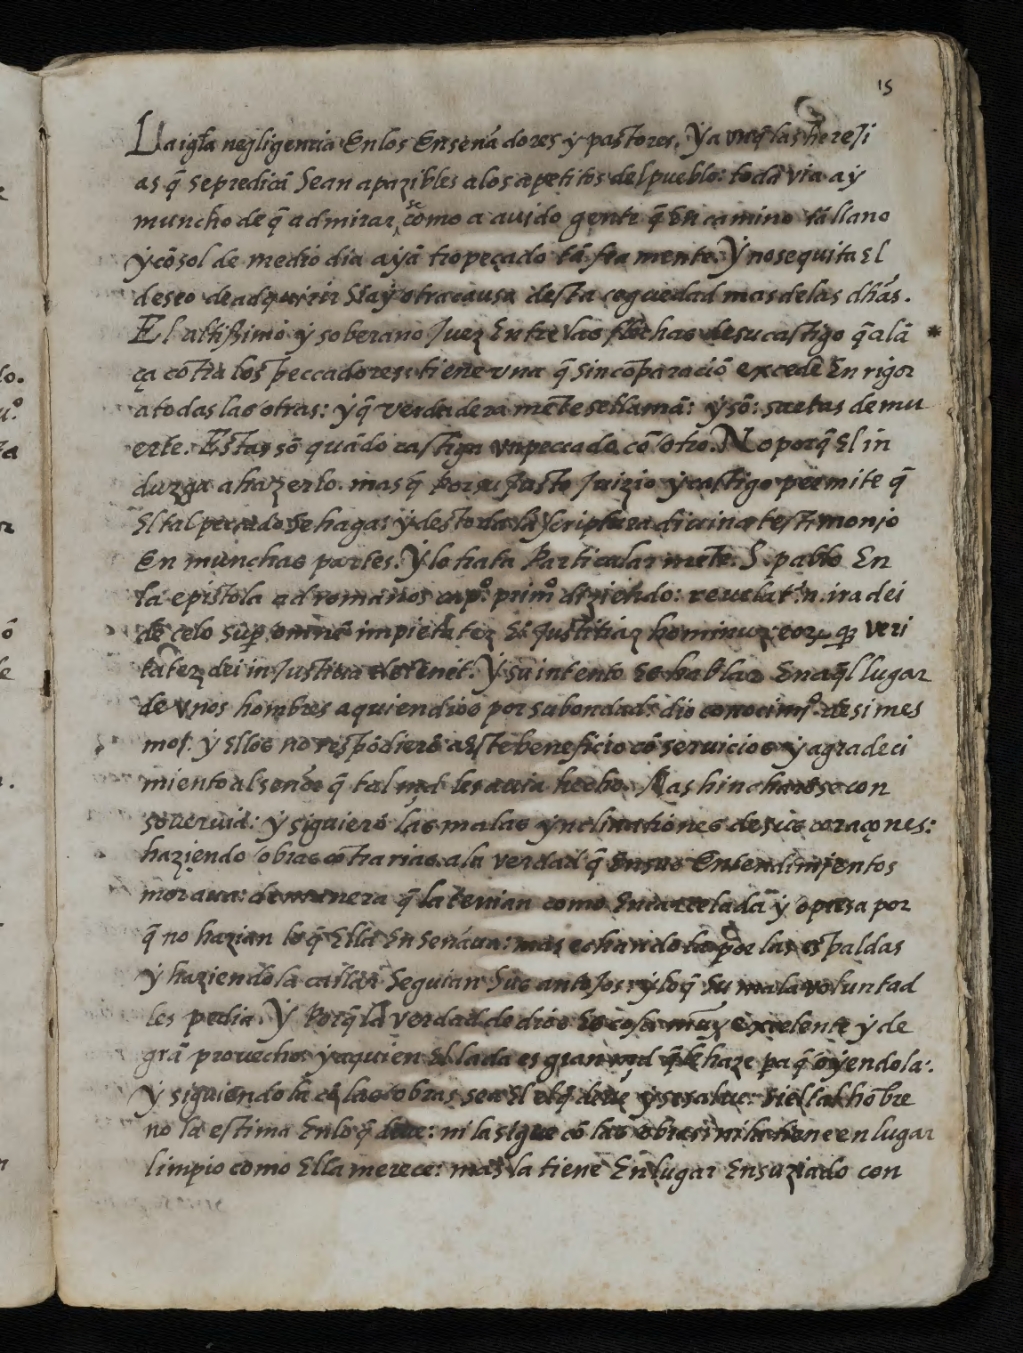 15
La igl̃a negligencia En los Ensenãdores y pastores, Y a vnq̃ las hereji
as q̃ se predicã Sean apazibles a los apetitos del pueblo: toda via ay
muncho de q̃ admirar, como a auido gente q̃ En camino tã llano
Y cõ sol de medio dia ayã tropeçado tã fea mente. Y no se quita El
deseo de adquirir Si ay otra causa desta ceguedad mas de las dhãs.
El altissimo y soberano Juez Entre las flechas de su castigo q̃ alã *
ça contra los peccadores: tiene vna q̃ sin comparaciõ excede En rigor
a todas las otras: y q̃ verdadera mẽte se llamã: y sõ: saetas de mu
erte. Estas sõ quãdo castiga vn peccado cõ otro. No porq̃ El in
duzga a hazerlo. mas q̃ Por su Justo Juizio y castigo permite q̃
El tal peccado Se haga: y desto da la Scriptura diuina testimonjo
En munchas partes. Y lo trata Particular mẽte. S. pablo En
la epistola ad romanos cap.º prim.º diziendo: reuelat.r n. ira dei
de celo sup̱ omnẽ impietatez Et Justitiaz hominuz eorꝝ qꝫ veri
tatez dei in Justitia detinẽt. Y su intento Es hablar En aq̃l lugar
de vnos hombres a quien dios por su bondad: dio conocim.º de si mes
mo: y Ellos no respõdierõ a Este beneficio cõ seruicios y agradeci
miento al señor q̃ tal mr̃d les auia hecho. Mas hincharõse con
soueruia: y siguierõ las malas ynclinationes de sus coraçones:
haziendo obras cõtrarias a la verdad q̃ En sus Entendimjentos
moraua: de manera q̃ la tenian como Encarcelada y opresa por
q̃ no hazian lo q̃ Ella Enseñaua: mas echandola por las espaldas
Y haziendola callar Seguian Sus antojos y lo q̃ Su mala voluntad
les pedia. Y Porq̃ la verdad de dios Es cosa muy excelente y de
grã prouecho: y a quien El la da es gran mr̃d q̃ le haze pa q̃ oyendola:
Y siguiendo la cõ las obras sea El el q̃ deue y se salue: si el tal hõbre
no la estima En lo q̃ deue: ni la sigue cõ las obras: ni la tiene en lugar
limpio como Ella merece: mas la tiene En lugar Ensuziado con